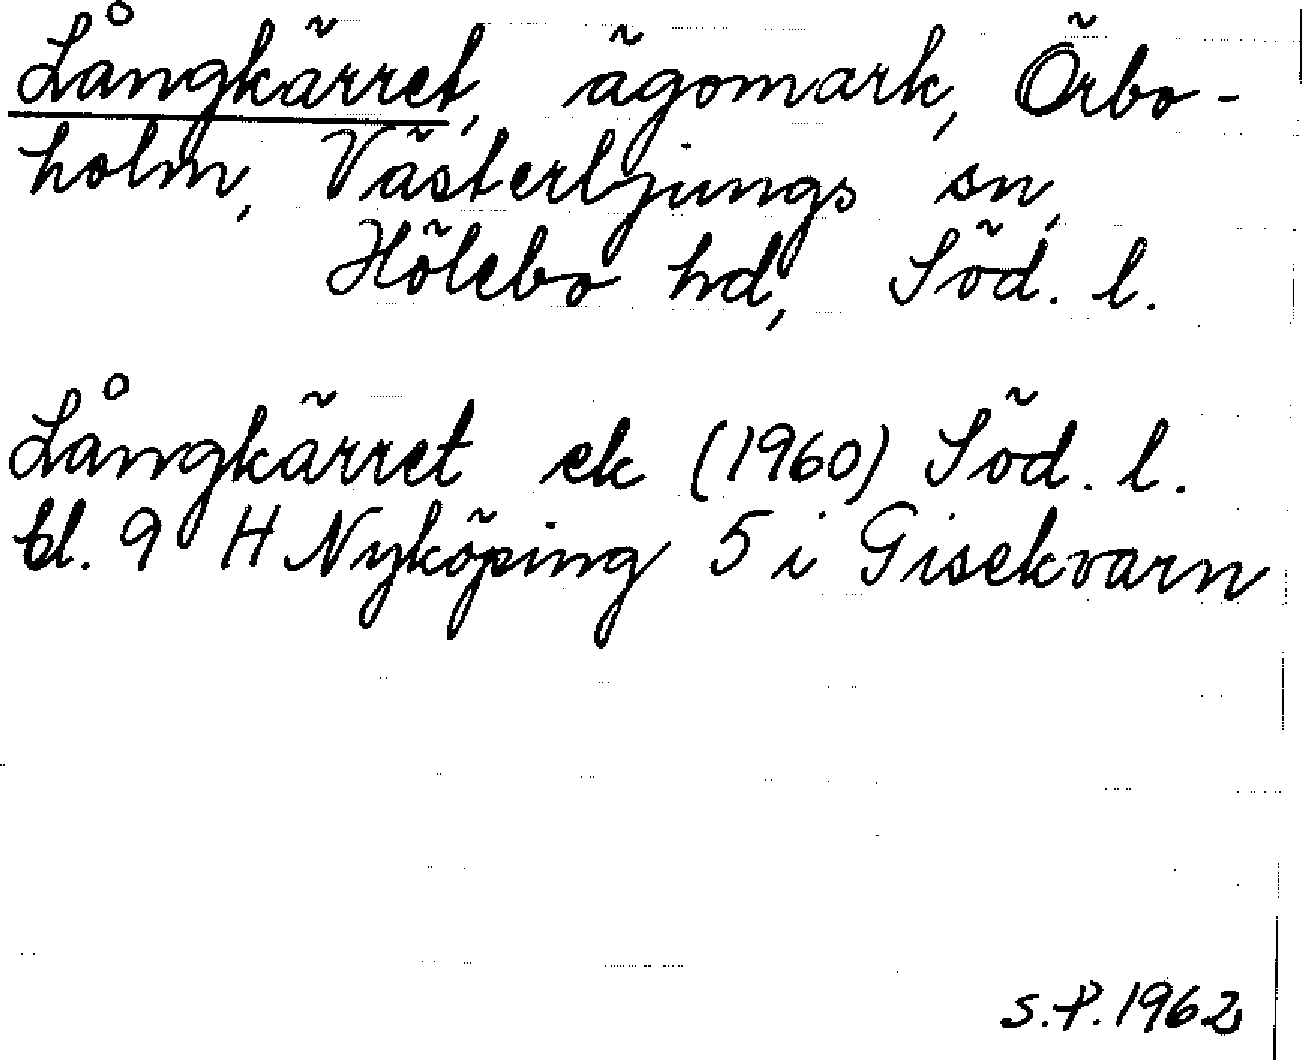 Långkärret, ägomark, Örbo-
holm, Västerljungs sn,
Hölebo hd, Söd. l.
Långkärret ek (1960) Söd. l.
bl. 9 H Nyköping 5 i Gisekvarn
S.P. 1962